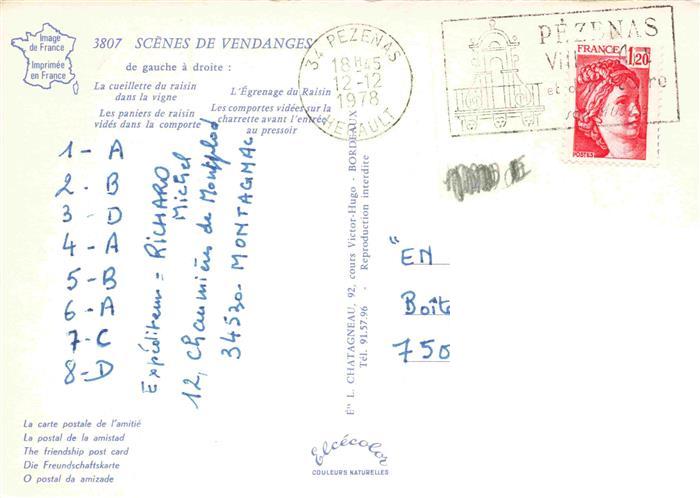 Image
de France
Imprimée
en France
3807 SCÈNES DE VENDANGES
de gauche à droite :
La cueillette du raisin
dans la vigne
Les paniers de raisin
vidés dans la comporte
L'Égrenage du Raisin
Les comportes vidées sur la
charrette avant l'entrée
au pressoir
1 - A
2 - B
3 - D
4 - A
5 - B
6 - A
7 - C
8 - D
Expéditeur = RICHARD
Michel
12, Chaumières de
34530 - MONTAGNAC
La carte postale de l'amitié
La postal de la amistad
The friendship post card
Die Freundschaftskarte
O postal da amizade
34 PEZENAS
18 H 45
12-12
1978
HERAULT
PÉZENAS
FRANCE
1,20
POSTES
Éts L. CHATAGNEAU, 92, cours Victor-Hugo - BORDEAUX
Tél. 91.57.96 - Reproduction interdite
"EN
Boîte
750
Elcécolor
COULEURS NATURELLES